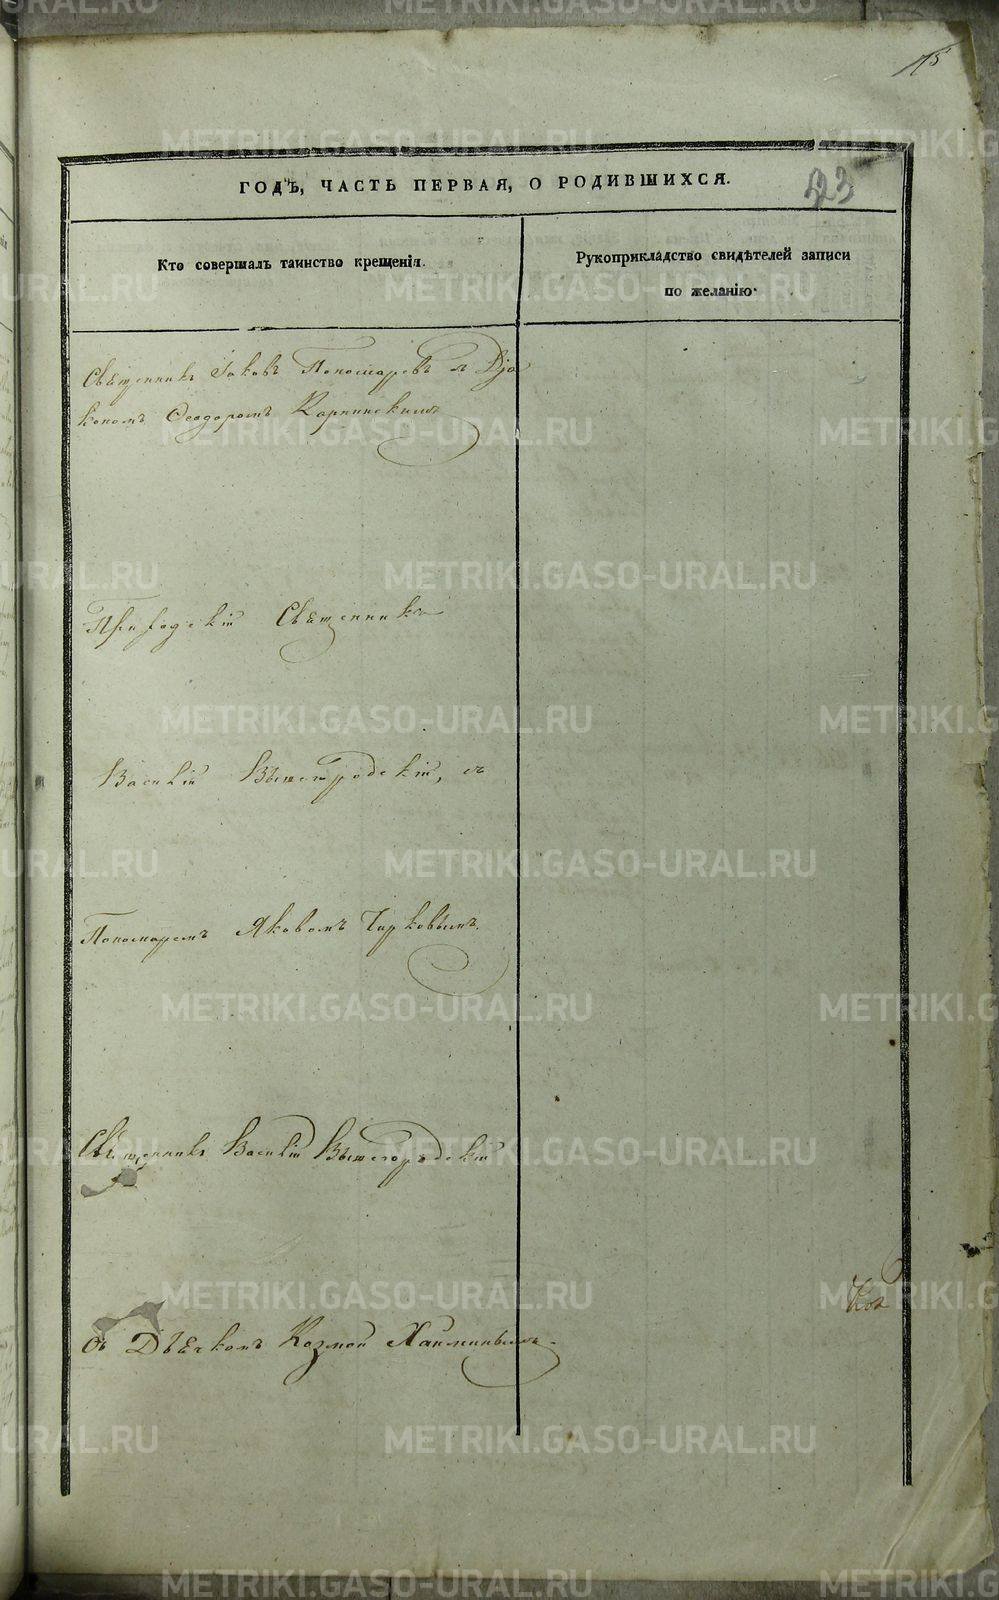 15
ГОДѢ, ЧАСТЬ ПЕРВАЯ, О РОДИВШИХСЯ.
23
Кто совершалъ таинство крещенія.
Рукоприкладство свидѣтелей записи
по желанію.
Священникъ Іаковъ Пономаревъ съ Дья
кономъ Ѳеодоромъ Карпинскимъ
Приходскій Священникъ
Василій Вышегродскій, съ
Пономаремъ Яковомъ Чирковымъ.
Священникъ Василій Вышегородскій
съ Дьячкомъ Козмой Хайминымъ.
METRIKI.GASO-URAL.RU